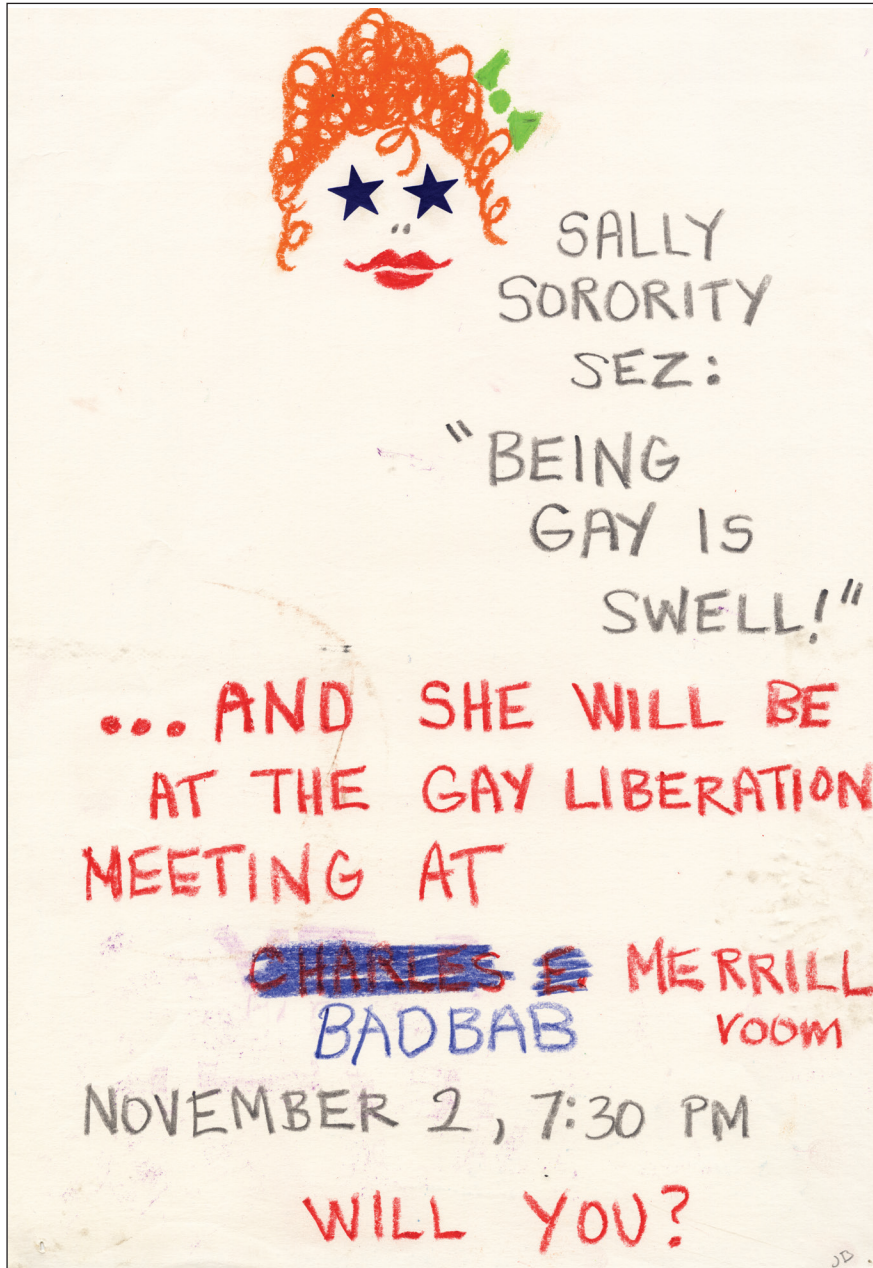 SALLY
SORORITY
SEZ:
"BEING
GAY IS
SWELL!"
...AND SHE WILL BE
AT THE GAY LIBERATION
MEETING AT
CHARLES E. MERRILL
BADBAB room
NOVEMBER 2, 7:30 PM
WILL YOU?
JD